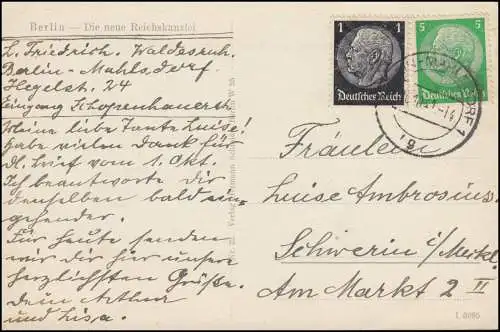 Berlin — Die neue Reichskanzlei
L. Friedrich. Waldesruh.
Berlin-Mahlsdorf.
Hegelst. 24
Eingang Schopenhauerstr.
Meine liebe Tante Luise!
Habe vielen Dank für
Dl. brief vom 1. Okt.
Ich beantworte dir
denselben bald ein-
gehender.
Für heute senden
wir dir hier unsere
herzlichsten Grüße.
Dein Arthur
und Lisa.
1 1
Deutsches Reich
5 5
Deutsches Reich
Fräulein
Luise Ambrosius.
Schwerin i/Meckl
Am Markt 2 II
L 6095